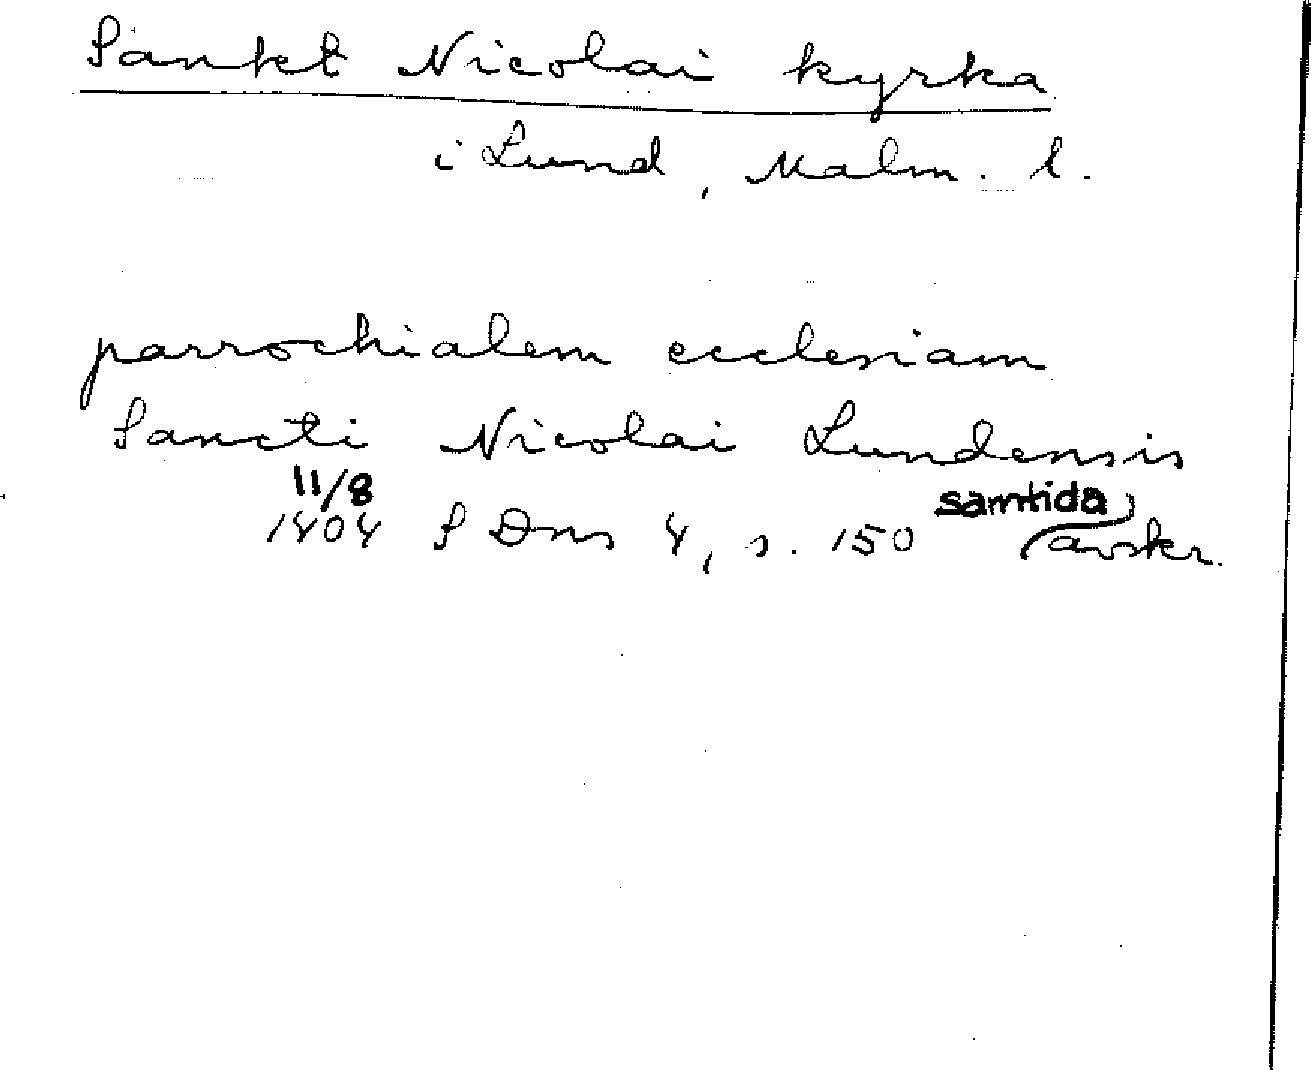 Sankt Nicolai kyrka
i Lund, Malm. l.
parrochialem ecclesiam
Sancti Nicolai Lundensis
11/8 samtida
1404 SDns 4, s. 150 avskr.